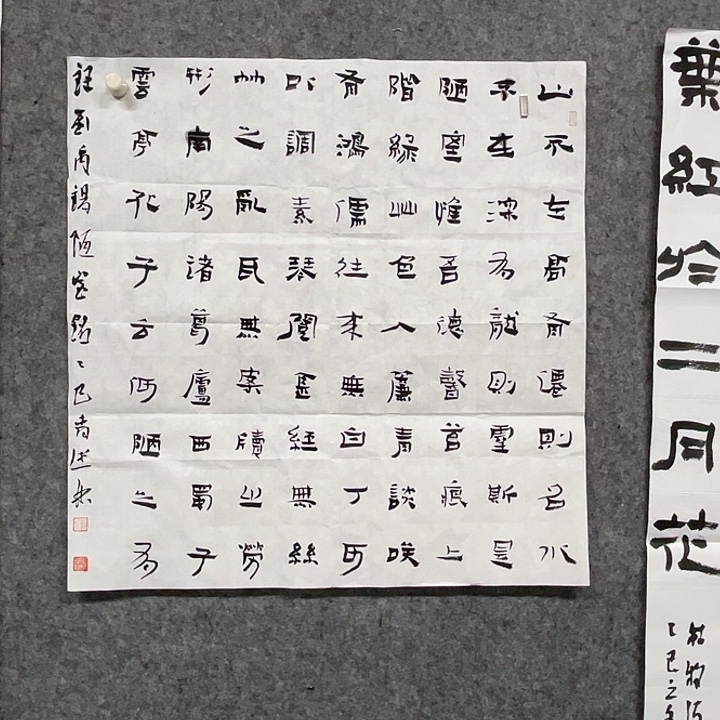 葉紅於二月花
杜牧詩
乙巳立
山不在高有僊則名水
不在深有龍則靈斯是
陋室惟吾德馨苔痕上
階緑艸色入簾青談咲
有鴻儒往来無白丁可
以調素琴閲金経無絲
竹之亂耳無案牘之勞
形南陽諸葛廬西蜀子
雲亭孔子云何陋之有
劉禹錫陋室銘乙巳春